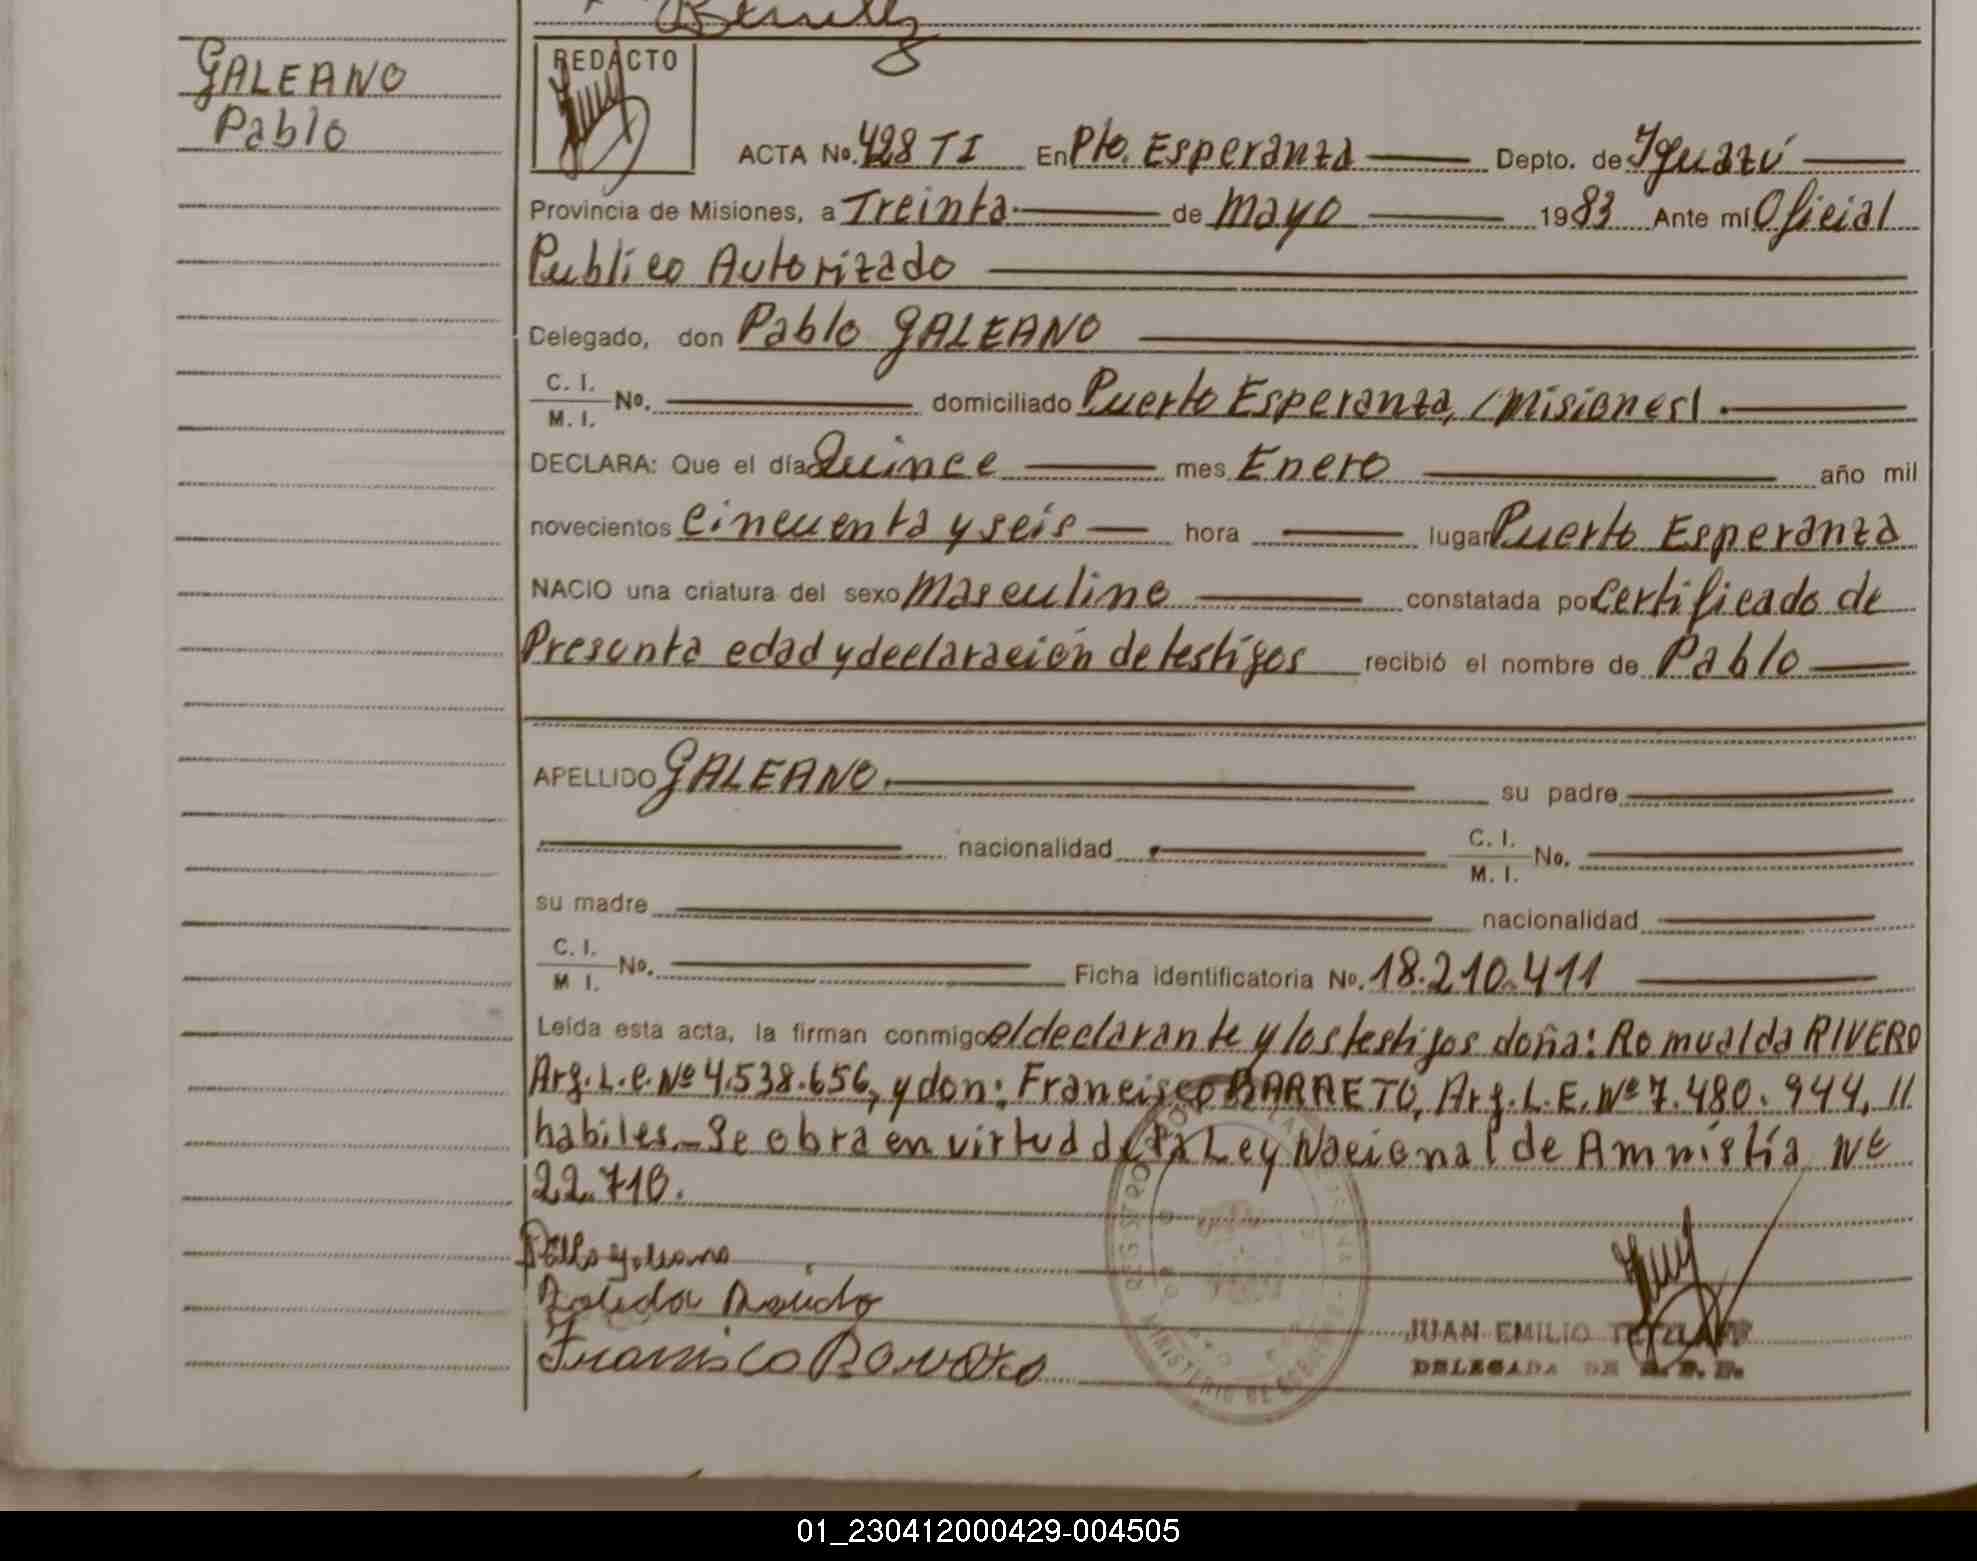 GALEANO
Pablo
REDACTO
ACTA No. 428 TI En Pto. Esperanza Depto. de Iguazú
Provincia de Misiones, a Treinta de mayo 1983 Ante mí Oficial
Publico Autorizado
Delegado, don Pablo GALEANO
C. I.
M. I. No. domiciliado Puerto Esperanza, (Misiones).
DECLARA: Que el día Quince mes Enero año mil
novecientos cincuenta y seis hora lugar Puerto Esperanza
NACIO una criatura del sexo masculino constatada por Certificado de
Presunta edad y declaración de testigos recibió el nombre de Pablo
APELLIDO GALEANO. su padre
nacionalidad C. I.
M. I. No.
su madre nacionalidad
C. I.
M I. No. Ficha identificatoria No. 18.210.411
Leída esta acta, la firman conmigo el declarante y los testigos doña: Romualda RIVERO
Arg. L.C. Nº 4.538.656, y don: Francisco BARRETO, Arg. L.E. Nº 7.480.944,
habiles.- Se obra en virtud de la Ley Nacional de Amnistía Nº
22.710.
Francisco Barreto
JUAN EMILIO
DELEGADA DE
01_230412000429-004505